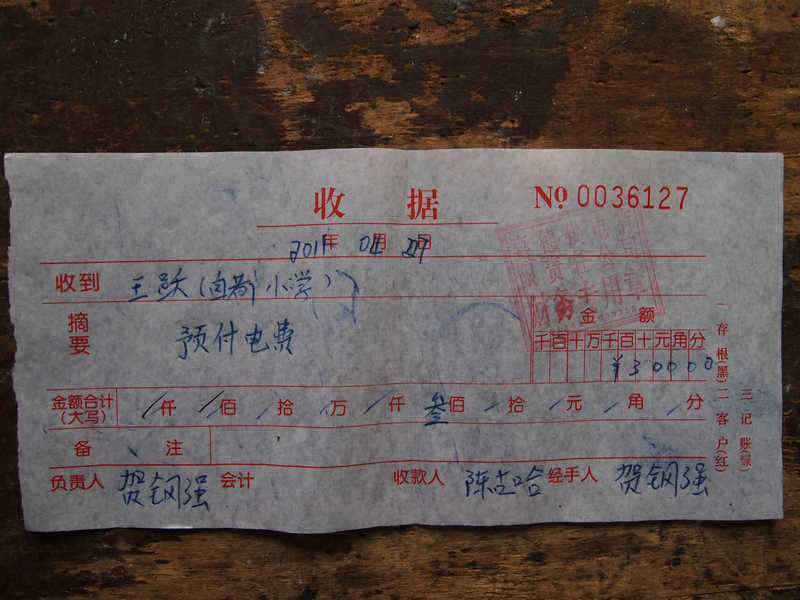 收 据 No 0036127
2011年 04月 27日
收到 王跃(白都小学)
财务专用章
摘要 预付电费
金 额
千百十万千百十元角分
¥30000
金额合计(大写) / 仟 / 佰 / 拾 / 万 / 仟 叁佰 / 拾 / 元 / 角 / 分
备 注
负责人 贺钢强 会计 收款人 陈 经手人 贺钢强
一存根(黑) 二客户(红)
三记账(绿)